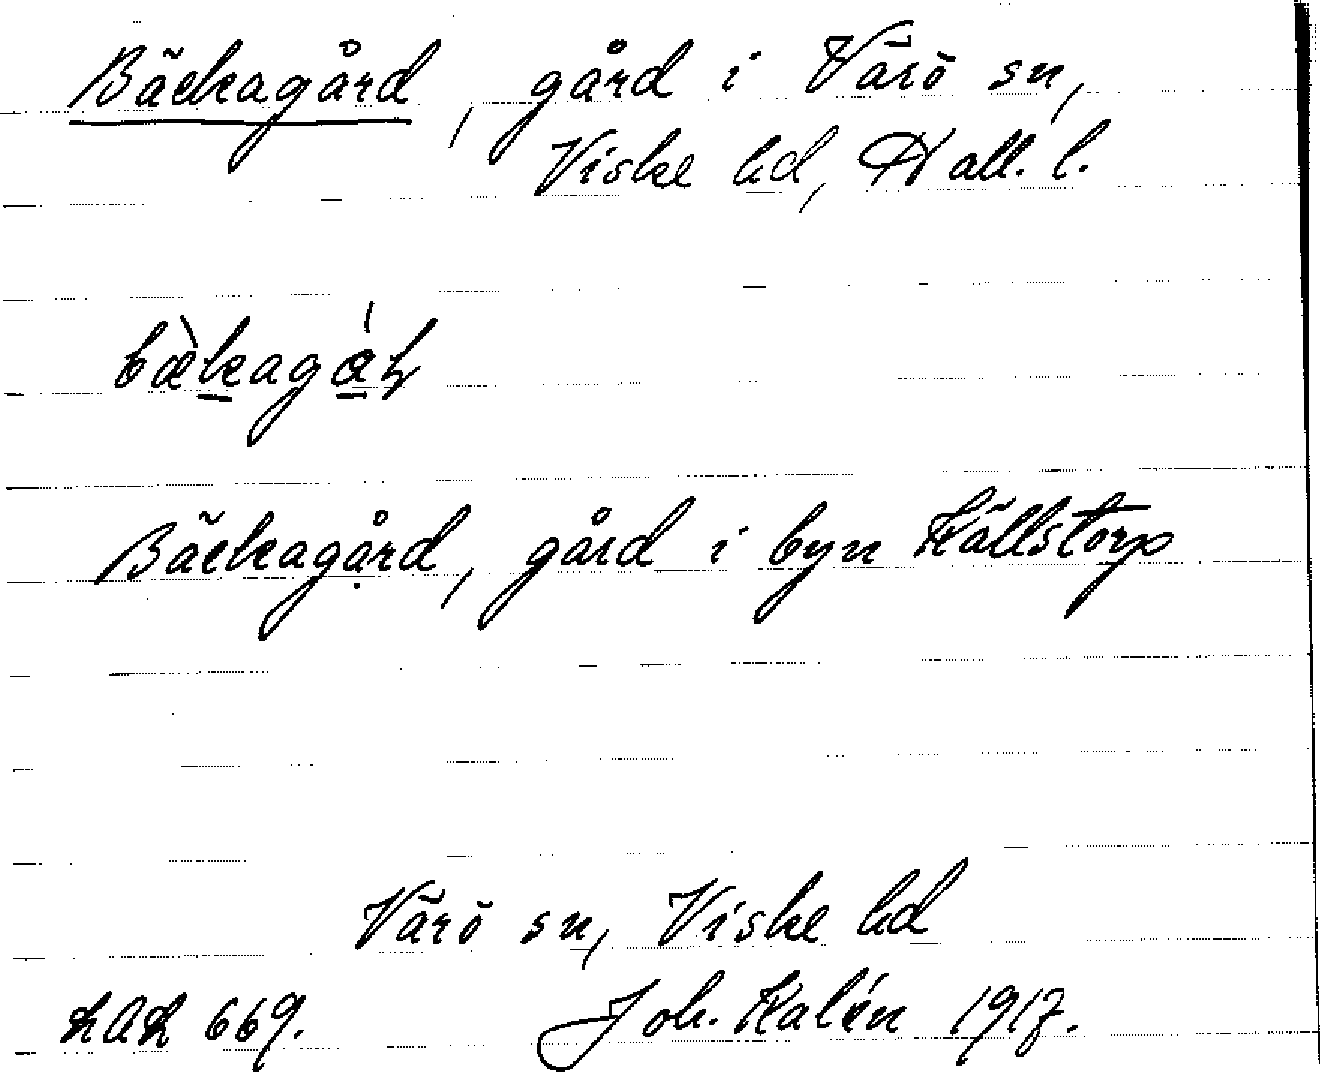 Bäckagård, gård i Värö sn,
Viske hd, Hall. l.
Bäckagård, gård i byn Källstorp
Värö sn, Viske hd
LAL 669. Joh. Kalén 1917.